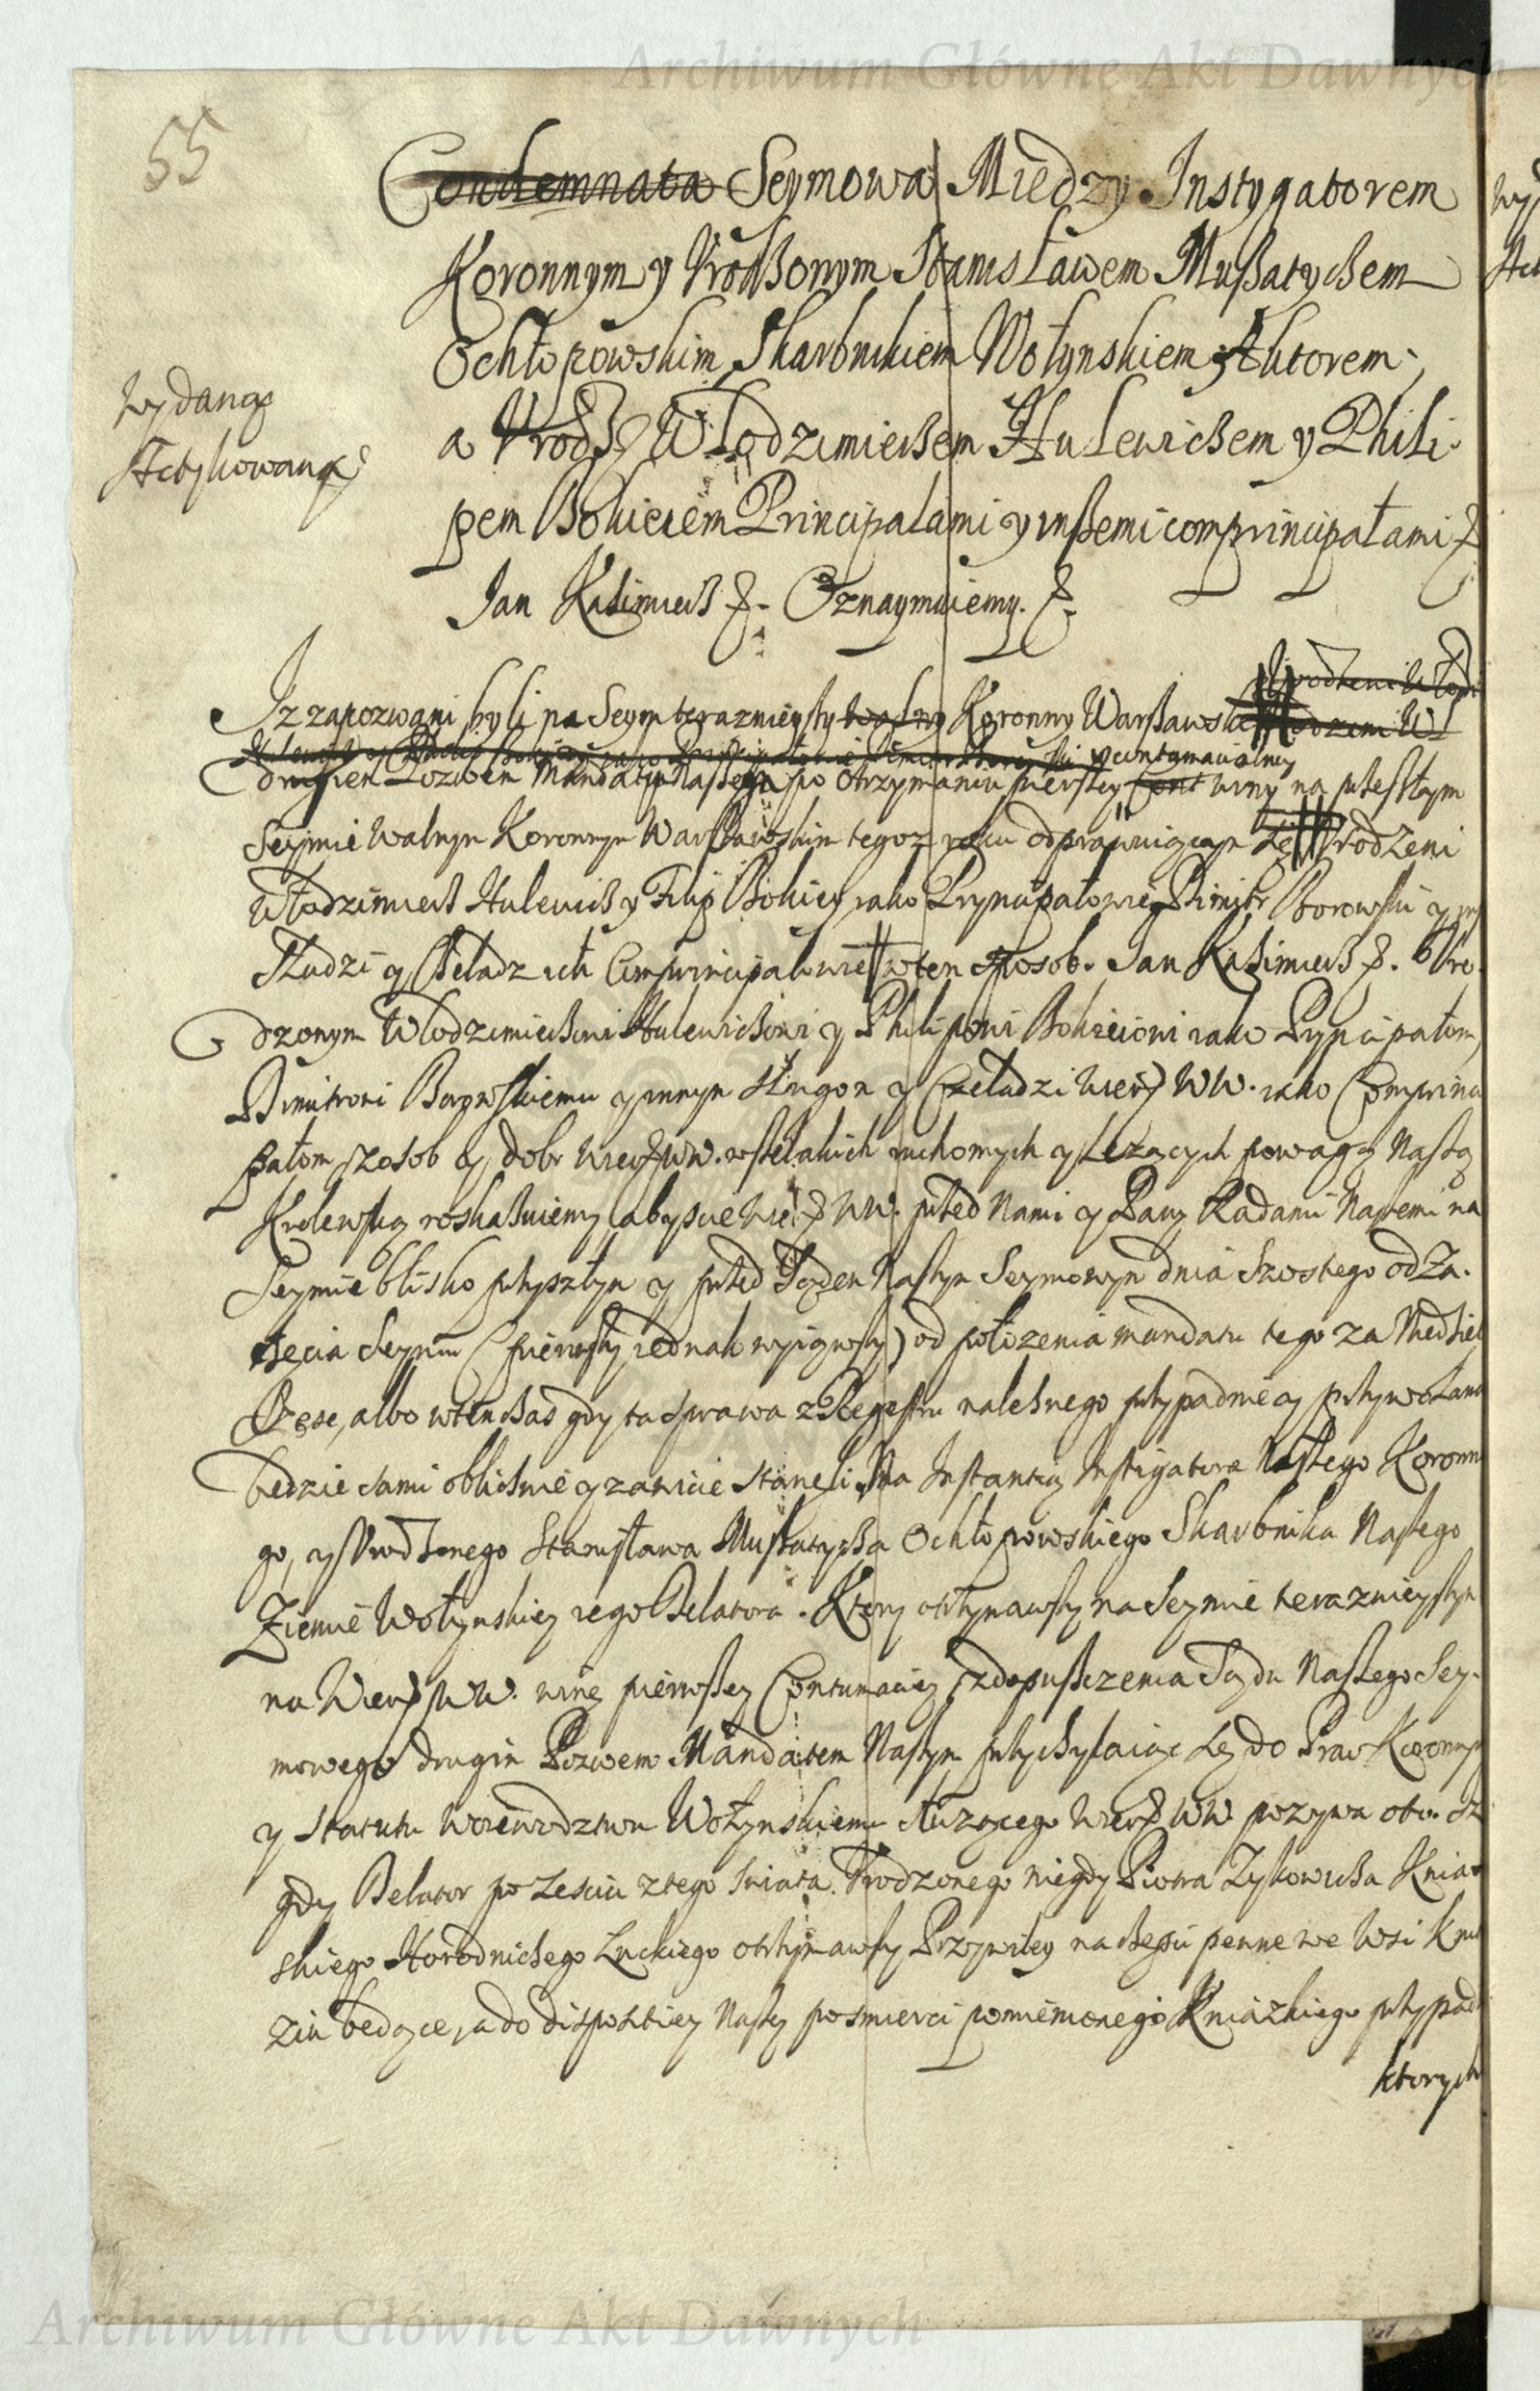 Archiwum Główne Akt Dawnych
55
Condemnata Seymowa Miedzy Instygatorem
Koronnym y Vrodzonym Stanisławem Mußatyczem
Ochłopowskim Skarbnikiem Wołynskiem Aktorem,
a Vrodz. Włodzimierßem Hulewicßem y Phili-
pem Bokieiem Principalami y inßemi comprincipałami
wydana
Actykowana
Jan Kazimierß Oznaymuiemy.
Iz zapozwani byli na Seym teraznieyszy walny Koronny Warßawski
drugiem Pozwem Mandatem Naszem po otrzymaniu pierszey winy contumacialney na przeszłym
Seymie Walnym Koronnym Warszawskim tegoz roku odprawuiącym się Vrodzeni
Włodzimierß Hulewicß y Filip Bokiey iako Prynicpałowie Dimitr Borowski y
Słudzi y Czeladz ich Comprincipałowie w ten sposob. Jan Kazimierß Vro-
dzonym Włodzimierßowi Hulewicßowi y Philipowi Bokieiowi iako Pryncipałom,
Dimitrowi Borowskiemu y innym sługom y Czeladzi Wier. WW. iako Comprinci
pałom z osob y dobr Wier. WW. wszelakich ruchomych y Lezących powagą Naszą
Krolewską roskazuiemy, abyscie Wier. WW. przed Nami y Pany Radami Naszemi na
Seymie blisko przyszłym y przed Sądem Naszym Seymowym dnia Szostego od Za-
częcia Seymu (pierwszy iednak wyiąwszy) od połozenia mandatu tego za Niedziel
albo wtenczas gdy ta sprawa z Regestru naleznego przypadnie y przywołana
będzie sami oblicznie y zawicie staneli. Na Instantią Instigatora Naszego Koronne
go, y Vrodzonego Stanisława Mußatycza Ochłopowskiego Skarbnika Naszego
Ziemie Wołynskiey iego Delatora. Ktory otrzymawszy na Seymie teraznieyszym
na Wier. WW. winę pierwszey Contumaciey z dopuszczenia Sądu Naszego Sey-
mowego drugim Pozwem Mandatem Naszym przychylaiąc się do Praw Koronnych
y Statutu Woiewodztwu Wołynskiemu słuzącego Wier. WW. pozywa oto. Iz
gdy Delator po ześciu z tego swiata Vrodzonego niegdy Piotra Zykowicza Kniaz
skiego Horodniczego Łuckiego otrzymawszy Przywiley na częsci pewne we Wsi Knia
ziu będące, a do dispositiey Naszey po smierci pomienionego Kniazkiego przypadł
ktorych
Archiwum Główne Akt Dawnych